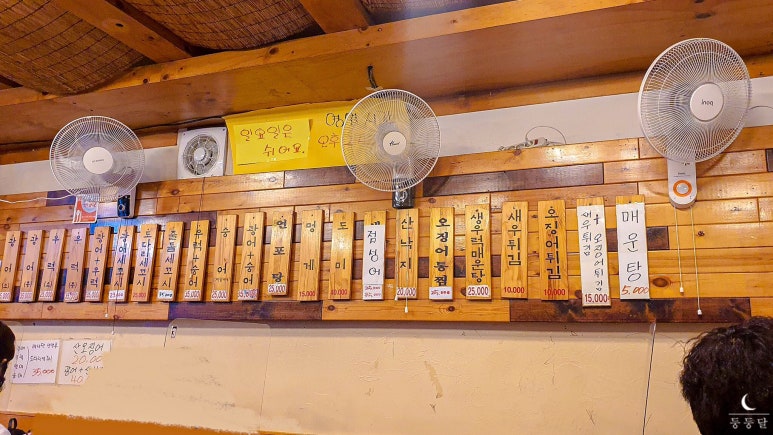 일요일은
쉬어요.
영업시
오후
inoq
광어
광어
우럭
우럭
광어+우럭
광어세꼬시
도다리세꼬시
우럭+숭어
25,000
숭어
25,000
광어+숭어
25,000
연포탕
25,000
멍게
15,000
도미
점성어
산낙지
20,000
오징어통찜
생우럭매운탕
25,000
새우튀김
10,000
오징어튀김
10,000
새우튀김+오징어튀김
15,000
매운탕
5,000
35,000
산오징어
20,000
광어+
40
둥둥달